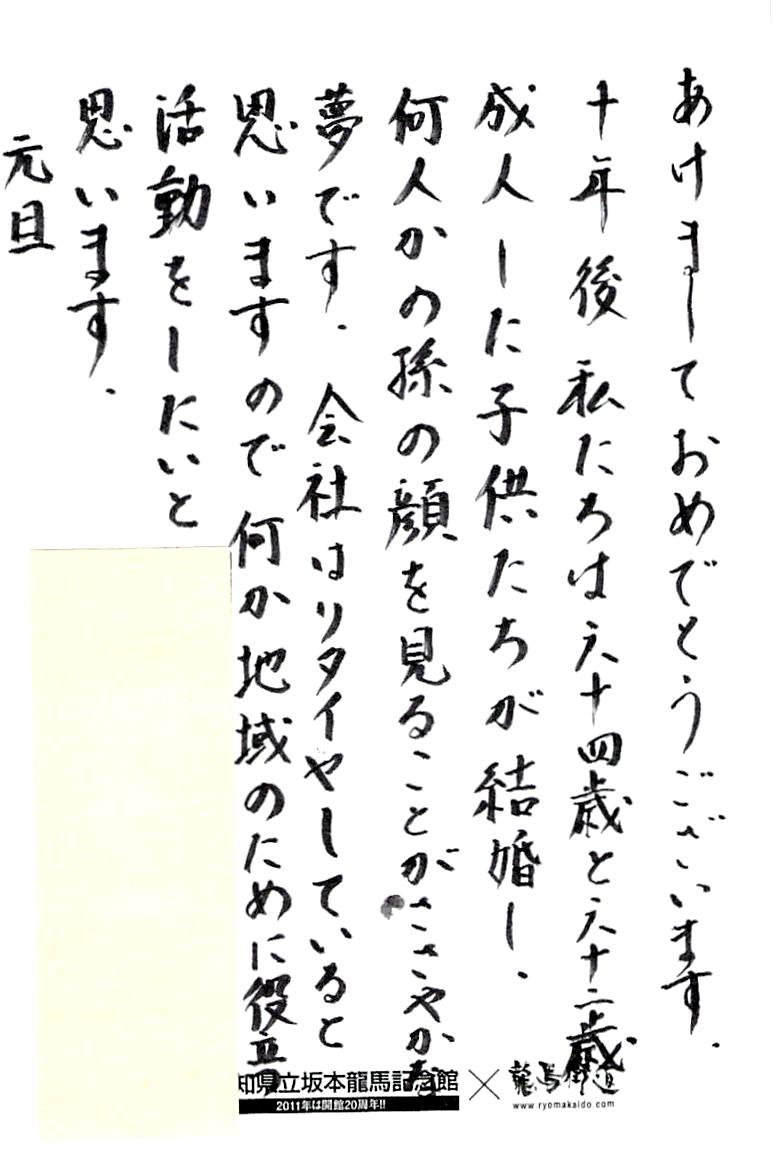 あけましておめでとうございます.
十年後私たちは六十四歳と六十二歳
成人した子供たちが結婚し.
何人かの孫の顔を見ることがささやかな
夢です. 会社はリタイヤしていると
思いますので何か地域のために役立つ
活動をしたいと
思います.
元旦
知県立坂本龍馬記念館×龍馬街道
2011年は開館20周年!!
www.ryomakaido.com